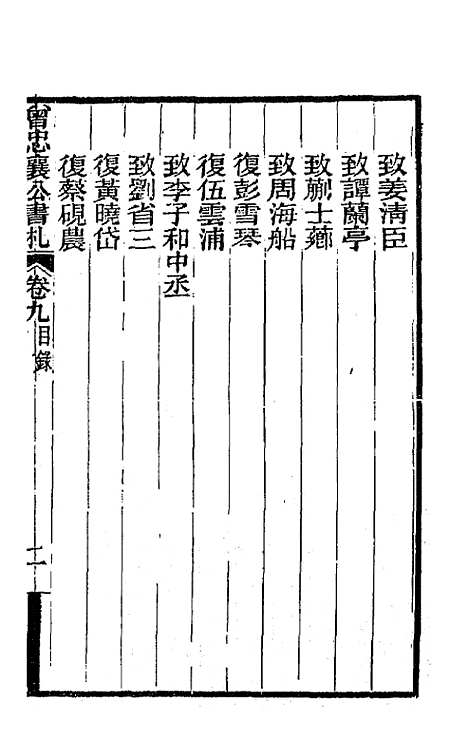 致姜淸臣
致譚蘭亭
致蒯士薌
致周海船
復彭雪琴
復伍雲浦
致李子和中丞
致劉省三
復黃曉岱
復蔡硯農
曾忠襄公書札 卷九目錄 二